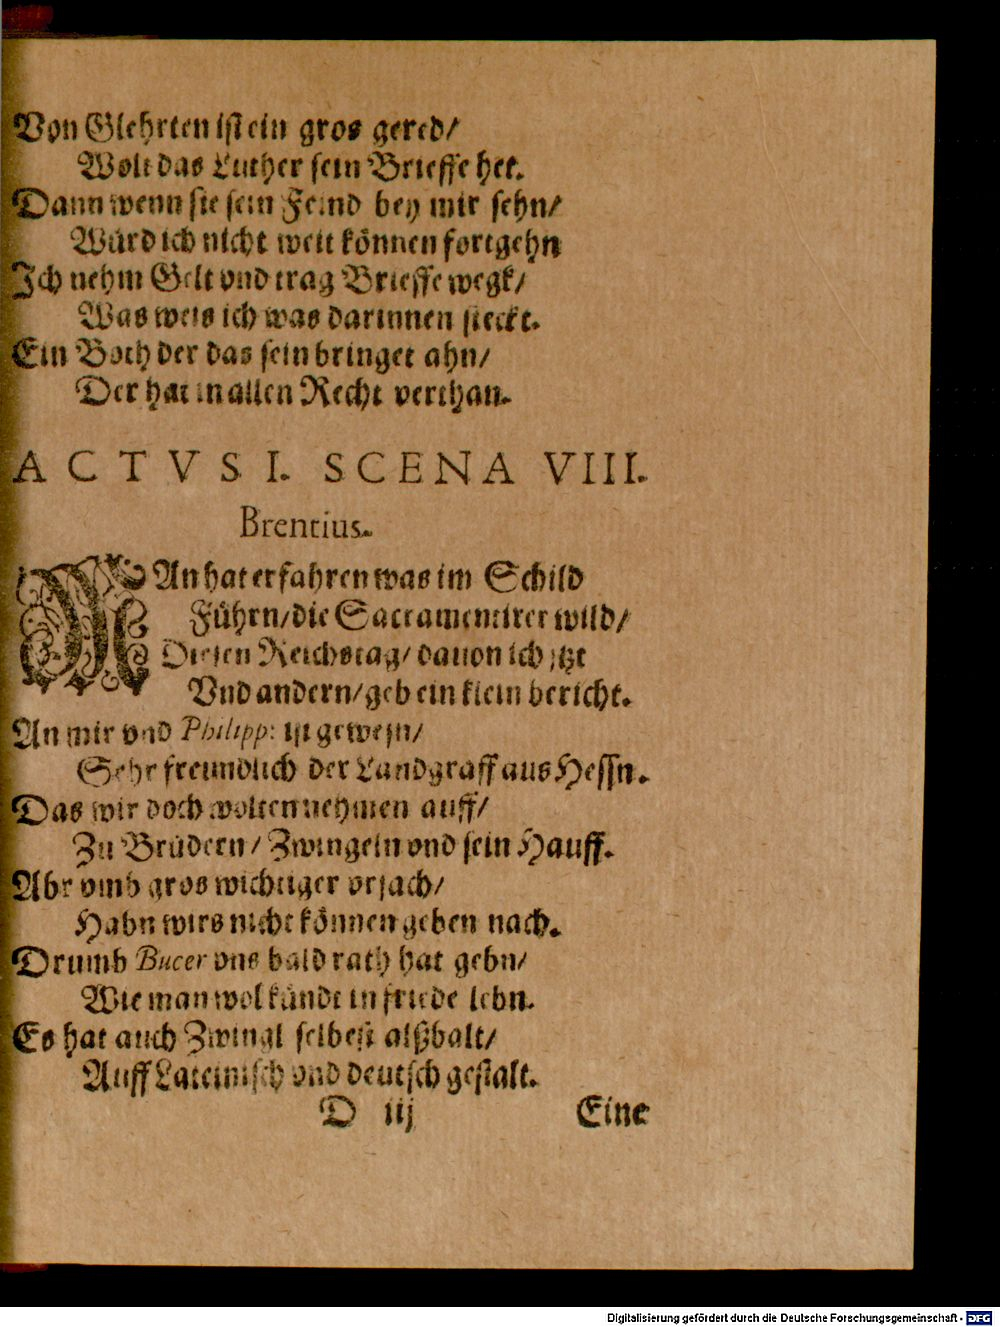 Von Glehrten ist ein gros gered/
Wolt das Luther sein Brieffe het.
Dann wenn sie sein Feind bey mir sehn/
Würd ich nicht weit können fortgehn
Ich nehm Gelt vnd trag Brieffe wegk/
Was weis ich was darinnen steckt.
Ein Both der das sein bringet ahn/
Der hat in allen Recht verthan.
ACTVS I. SCENA VIII.
Brentius.
MAn hat erfahren was im Schild
Führn/die Sacramentirer wild/
Diesen Reichstag/ dauon ich itzt
Vnd andern/geb ein klein bericht.
An mir vnd Philipp: ist gewesn/
Sehr freundlich der Landgraff aus Hessn.
Das wir doch wolten nehmen auff/
Zu Brüdern/ Zwingeln vnd sein Hauff.
Abr vmb gros wichtiger vrsach/
Habn wirs nicht können geben nach.
Drumb Bucer vns bald rath hat gebn/
Wie man wol künde in friede lebn.
Es hat auch Zwingl selbest alßbalt/
Auff Lateinisch vnd deutsch gestalt.
D iij Eine
Digitalisierung gefördert durch die Deutsche Forschungsgemeinschaft - DFG